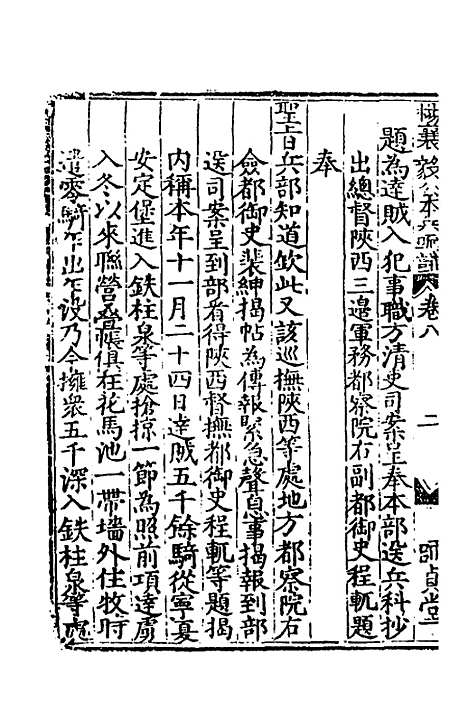 楊襄毅公本兵疏議 卷八 二 師貞堂
題為達賊入犯事職方清吏司案呈奉本部送兵科抄
出總督陝西三邊軍務都察院右副都御史程軏題
奉
聖旨兵部知道欽此又該巡撫陝西等處地方都察院右
僉都御史裴紳揭帖為傳報緊急聲息事揭報到部
送司案呈到部看得陝西督撫都御史程軏等題揭
內稱本年十一月二十四日達賊五千餘騎從寧夏
安定堡進入鉄柱泉等處搶掠一節為照前項達虜
入冬以來聯營疊帳俱在花馬池一帶墻外住牧時
遣零騎乍出乍没乃今擁衆五千深入鉄柱泉等處